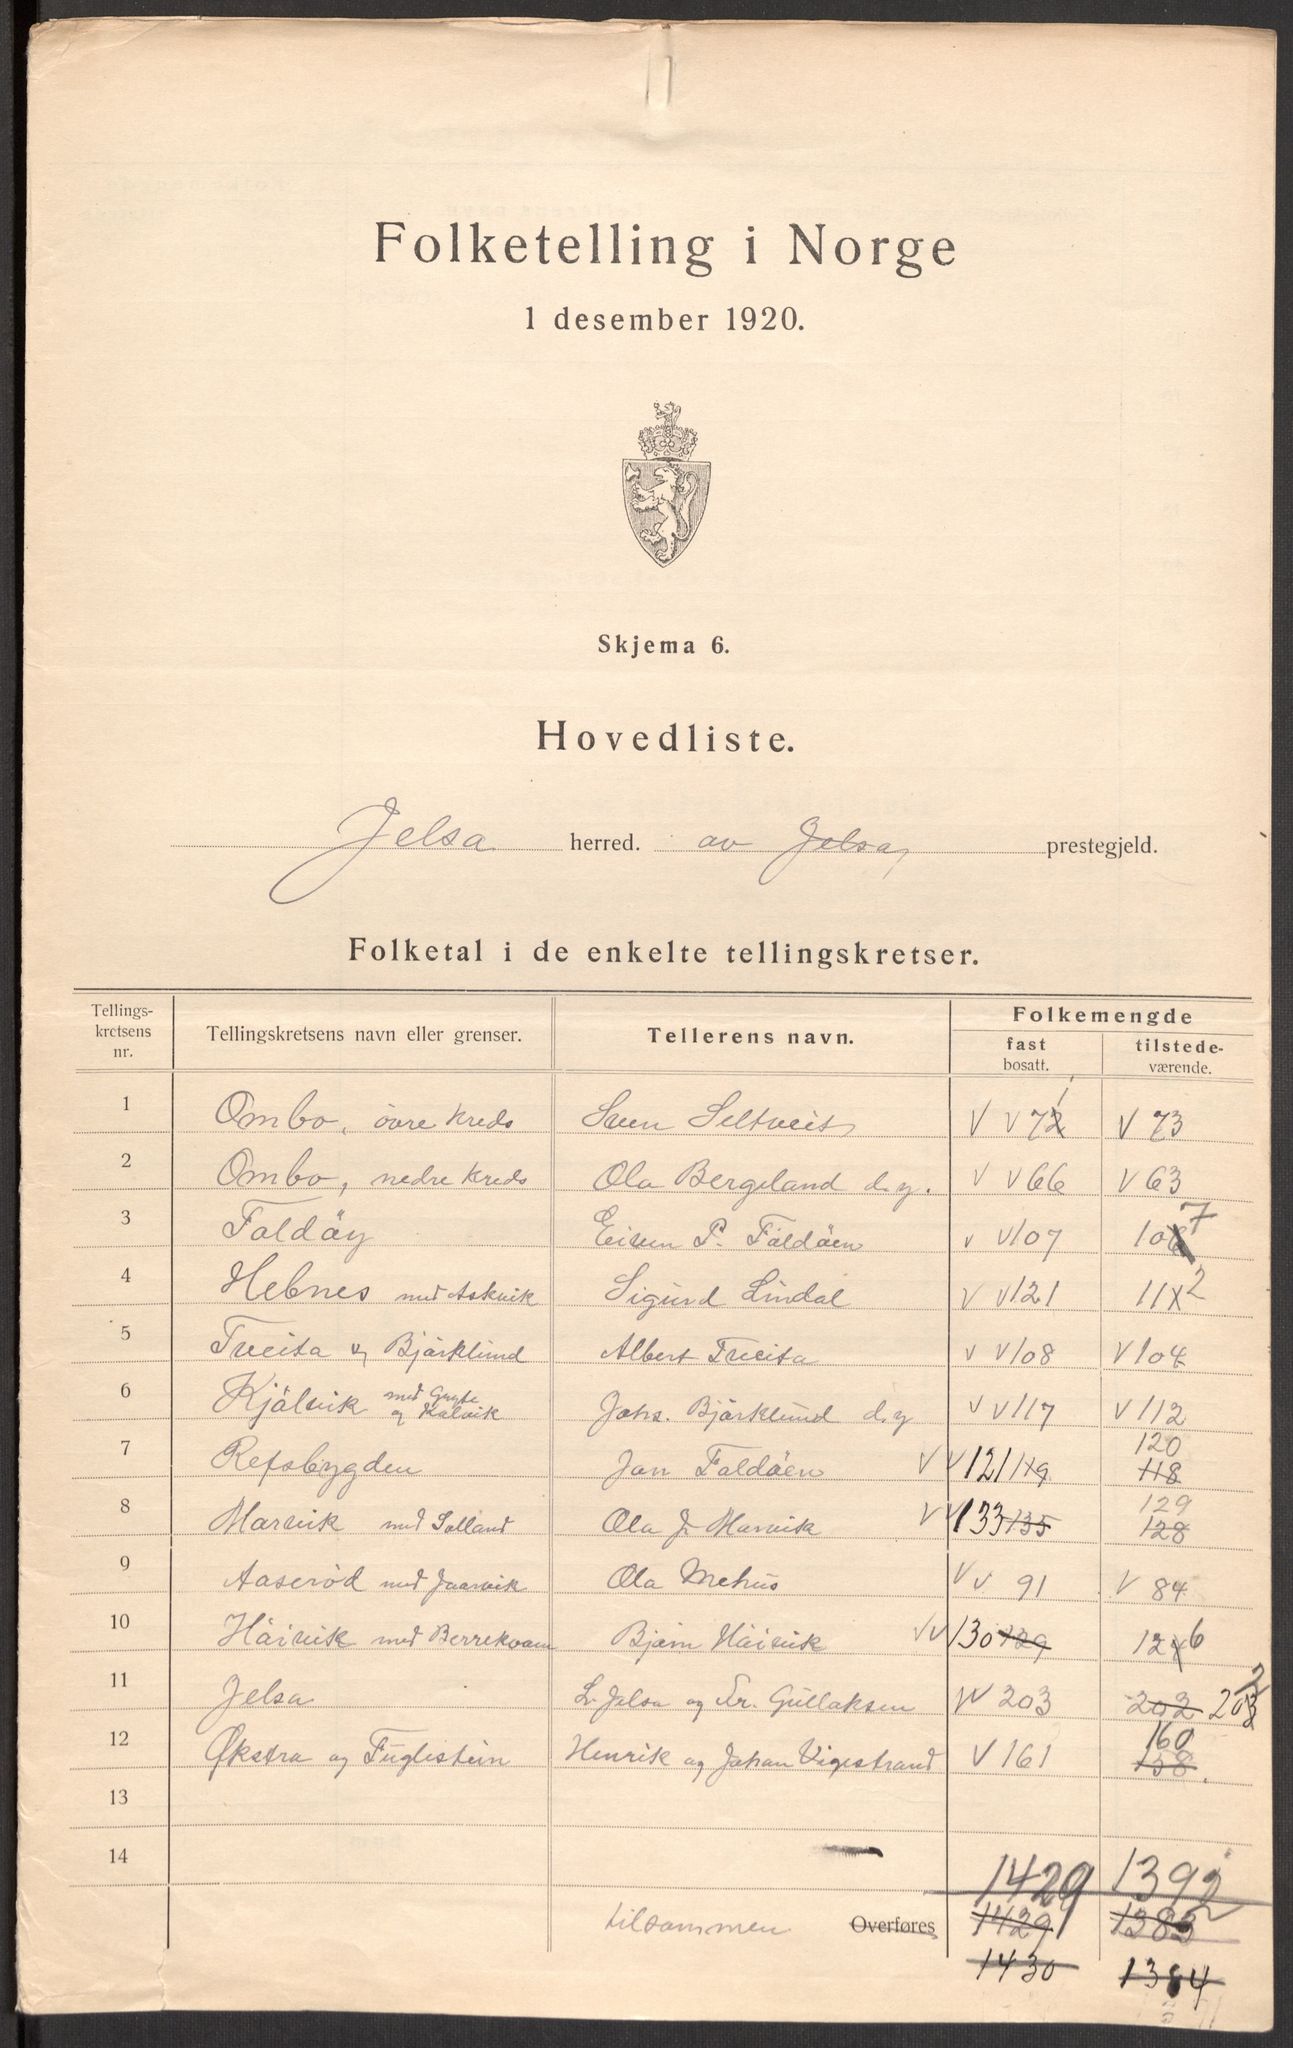 Folketelling i Norge
1 desember 1920.
Skjema 6.
Hovedliste.
Jelsa herred. av Jelsa prestegjeld.
Folketal i de enkelte tellingskretser.
Tellings-
kretsens
nr.
Tellingskretsens navn eller grenser.
Tellerens navn.
Folkemengde
fast
bosatt.
tilstede-
værende.
1 Ombo, övre kreds Sven Seltveit V V 721 V 73
2 Ombo, nedre kreds Ola Bergeland d.y. V V 66 V 63
3 Foldöy P. Foldöen V V 107 1067
4 Hebnes med Askvik Sigurd Lindal V V 121 11 2
5 Tveita og Björklund Albert Tveita V V 108 V 104
6 Kjölvik med og Kalvik Johs. Björklund d.y V V 117 V 112
7 Refsbygden Jon Foldöen V V 121 119 120 118
8 Marvik med Solland Ola J. Marvik V V 133 135 129 128
9 Aaseröd med Jaarvik Ola Mehus V V 91 V 84
10 Håivik med Berrekvam Bjørn Håivik V V 130 129 12 6
11 Jelsa L. Jelsa og Gullaksen V V 203 202 203 2
12 Økstra og Fuglestein Henrik og Johan Vigestrand V 161 160 158
13
14
1429 1392
tilsammen Overføres 1429 1383
1430 1384